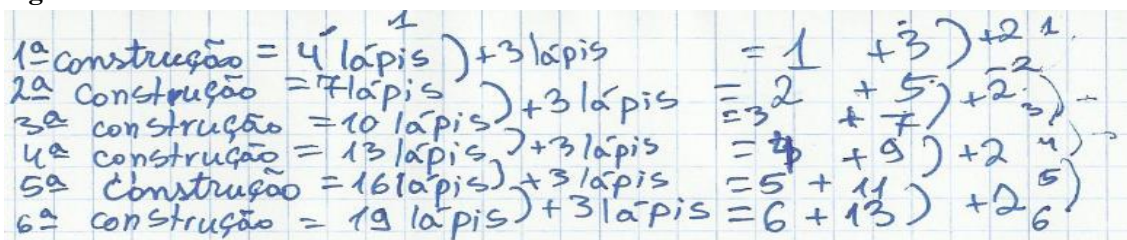 1
1ª construção = 4 lápis ) + 3 lápis = 1 + 3 ) + 2 1
2ª construção = 7 lápis ) + 3 lápis = 2 + 5 ) + 2 2
3ª construção = 10 lápis = 3 + 7 ) 3
4ª construção = 13 lápis ) + 3 lápis = 4 + 9 ) + 2 4
5ª construção = 16 lápis ) + 3 lápis = 5 + 11 5
6ª construção = 19 lápis ) + 3 lápis = 6 + 13 ) + 2 6